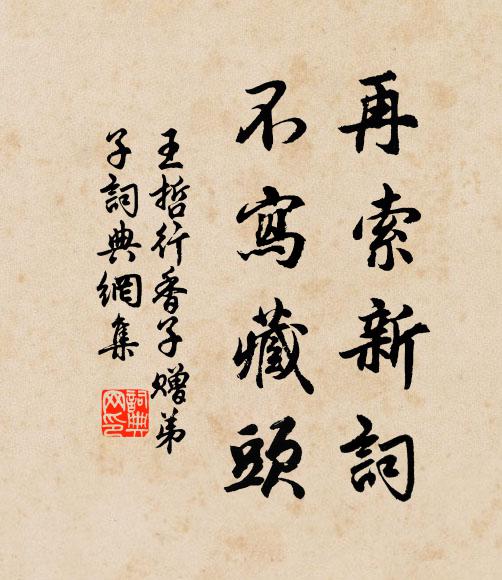 再索新詞
不寫藏頭
王哲行香子赠弟
子詞典網集
詞典
网印